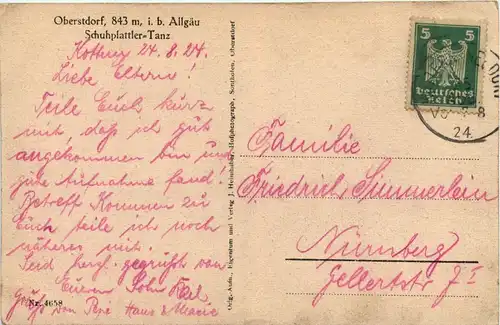 Oberstdorf, 843 m, i. b. Allgäu
Schuhplattler-Tanz
24.8.24.
Liebe Eltern!
Teile Euch kurz
mit, daß ich gut
angekommen bin und
gute Aufnahme fand!
Betreff Kommen zu
Euch teile ich noch
näheres mit.
Seid herzl. gegrüßt von
Eurem Sohn
Grüße von René Hans & Marie
Nr. 4658
Orig.-Aufn., Eigentum und Verlag J. Heimhuber, Hofphotograph, Sonthofen, Oberstdorf
5 5
Deutsches
Reich
24.
Familie
Friedrich Simmerlein
Nürnberg
Gellertstr. 7 I